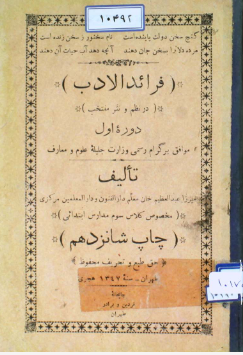 ۱۰۴۹۲
گنج سخن دوی پاینده است نام سخنور ز سخن زنده است
مرده دلان را سخن جان دهد آنچه دهد آب حیات آن دهد
( فرائد الادب )
( در نظم و نثر منتخب )
دورهٔ اول
موافق پرگرام رسمی وزارت جلیلهٔ علوم و معارف
تألیف
میرزا عبدالعظیم خان معلم دارالفنون و دارالمعلمین مرکزی
( مخصوص کلاس سوم مدارس ابتدائی )
( چاپ شانزدهم )
حق طبع و تحریف محفوظ
طهران - سنهٔ ۱۳۴۷ هجری
طهران